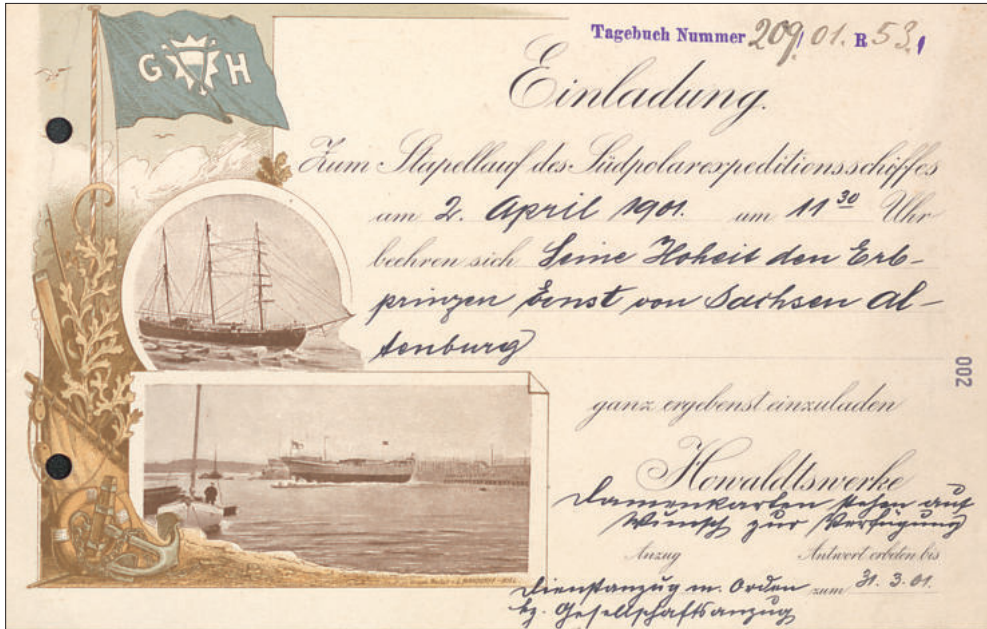 G H
Tagebuch Nummer 209/01. R 53.1
Einladung.
Zum Stapellauf des Südpolarexpeditionsschiffes
am 2. April 1901. um 11 30 Uhr
beehren sich Seine Hoheit den Erb-
prinzen Ernst von Sachsen Al-
tenburg
002
ganz ergebenst einzuladen
Howaldtswerke
Damenkarten stehen auf
Wunsch zur Verfügung
Anzug Antwort erbeten bis
Dienstanzug m. Orden zum 31. 3. 01.
bz. Gesellschaftsanzug